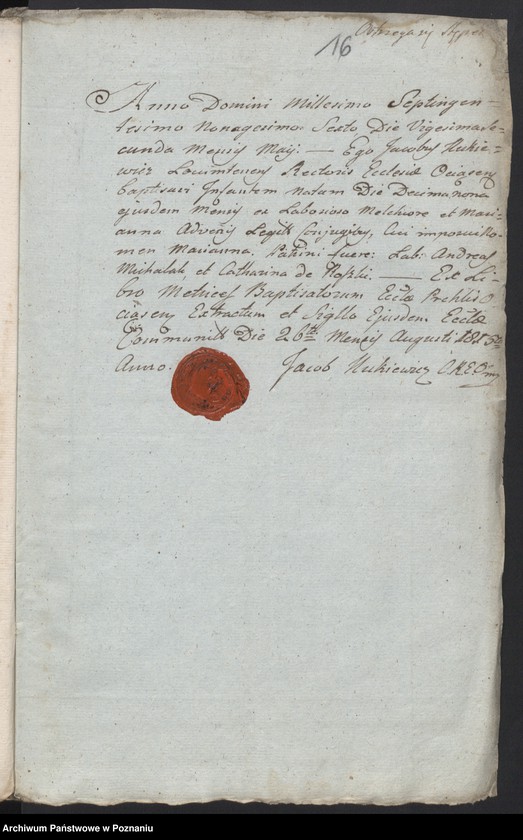 16
Anno Domini Millesimo Septingen-
tesimo Nonagesimo Sexto Die Vigesima Se-
cunda Mensis Maij. — Ego Jacobus Nukie-
wicz Locumtenens Rectoris Ecclesiæ Ociasens
baptisavi Infantem natam Die Decima nona
ejusdem Mensis ex Laborioso Melchiore et Mari-
anna Advenis Legit: Conjugibus, Cui imposui No-
men Marianna. Patrini fuere: Lab: Andreas
Michalak et Catharina de — Ex Li-
bro Metrices Baptisatorum Ecclæ
Ociasens Extractum et Sigillo Ejusdem Ecclæ
Communit Die 26ta Mensis Augusti 1815to
Anno. Jacob Nukiewicz
Archiwum Państwowe w Poznaniu